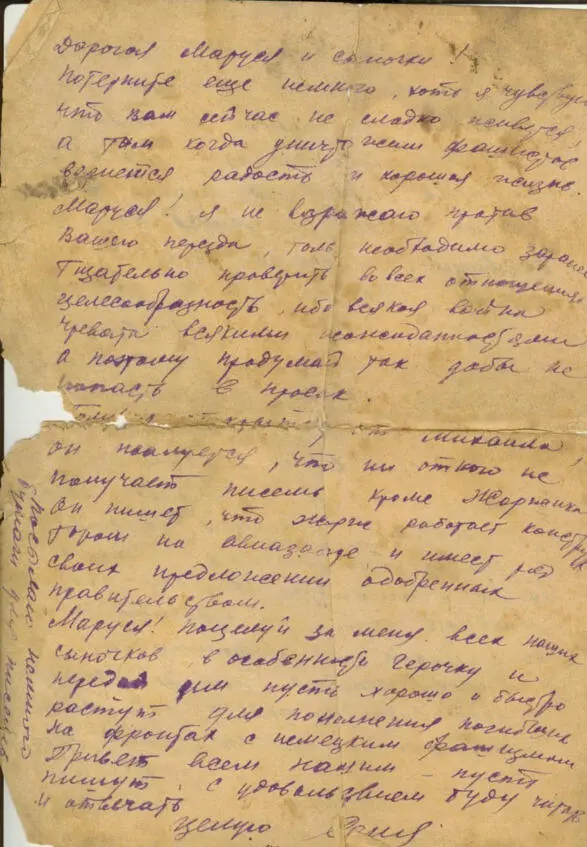 Дорогая Маруся и сыночки!
Потерпите еще немного, хоть я чувствую
что вам сейчас не сладко живется!
а там когда уничтожим фашистов
вернется радость и хорошая жизнь.
Маруся! я не возражаю против
Вашего переезда, толь необходимо заране
тщательно проверить во всех отношениях
целесообразность, ибо всякая война
чревата всякими неожиданностями
а поэтому продумай так дабы не
попасть в просак
от Михаила!
он жалуется, что ни от кого не
получает писем кроме Жоржика
Он пишет, что Жорж работает констру
тором на авиазаводе и имеет ряд
своих предложений одобренных
правительством.
Маруся! поцелуй за меня всех наших
сыночков, в особенности Герочку и
передай им пусть хорошо и быстро
растут для пополнения погибших
на фронтах с немецким фашизмом
Привет всем нашим – пусть
пишут, с удовольствием буду читать
и отвечать
целую
посылаю немного
бумаги для писем